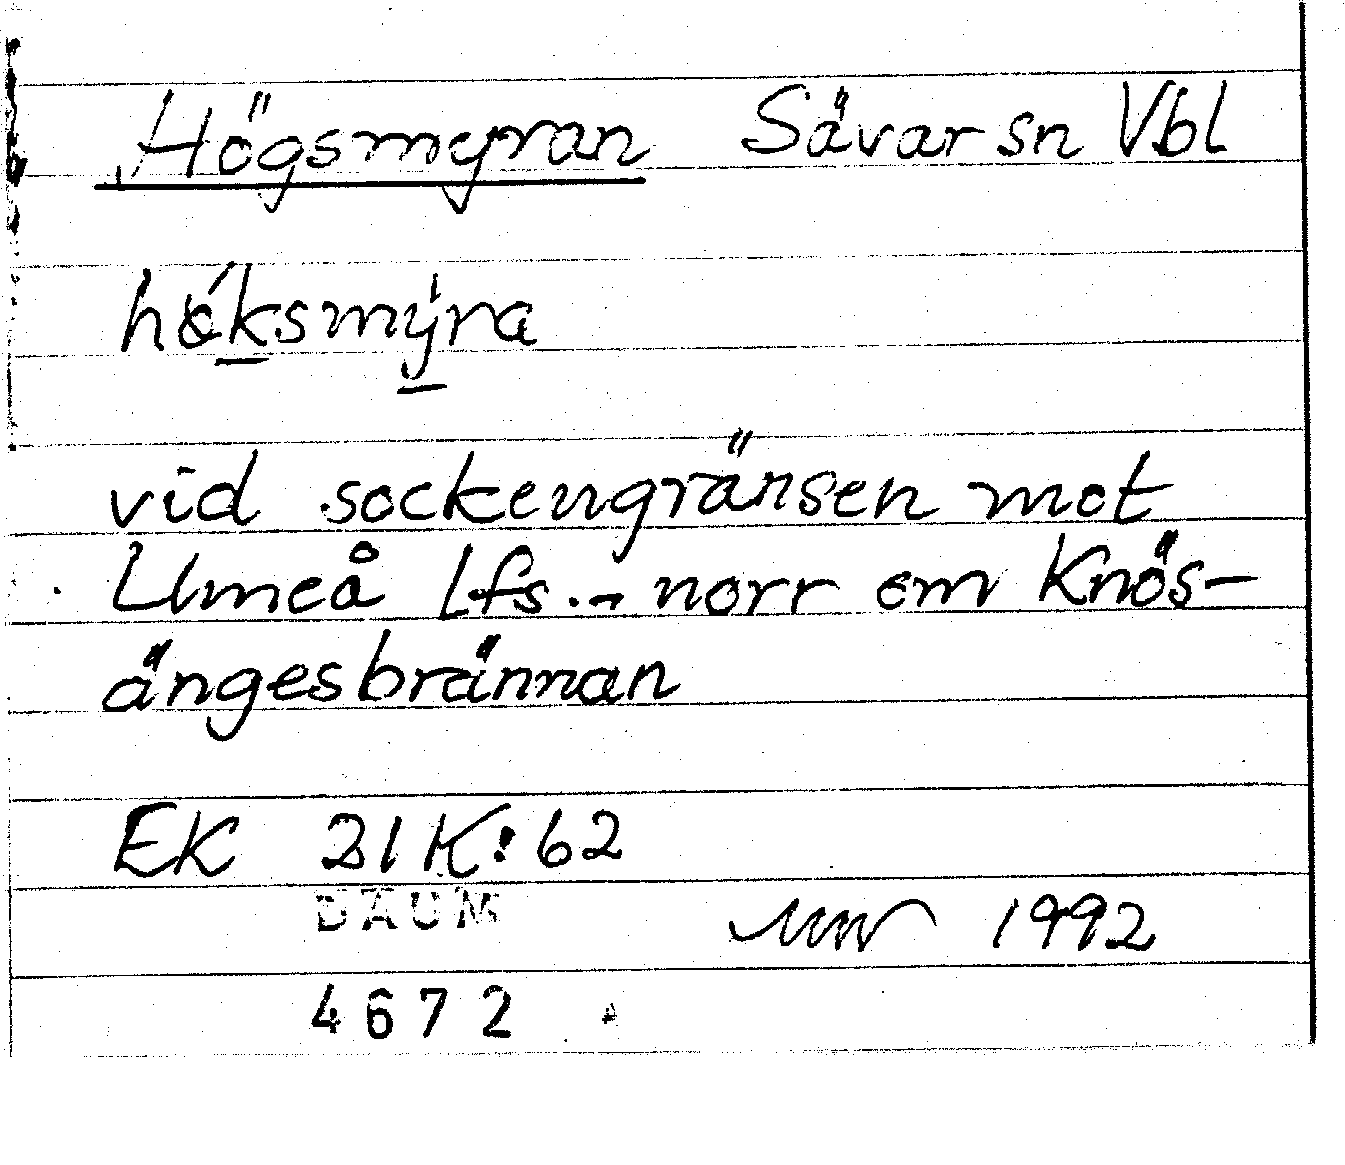 Högsmyran Sävar sn Vbl
høksmyra
vid sockengränsen mot
Umeå lfs. - norr om Knös-
ängesbrännan
EK 21K:62
DAUM
1992
4672